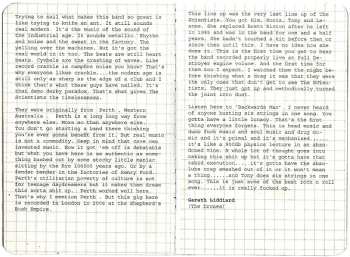 Trying to nail what makes this band so great is
like trying to knife an ant. It still sounds
real modern. It's the music of the sound of
the industrial age. It sounds metallic. Rhyme
and noise and the sweat in the factory. The
yelling over the machines. But it's got the
real world in it too. The beats are still heart
beats. Cymbals are the crashing of waves. Like
record crackle is campfire noise you hear. That's
why everyone likes crackle...the modern age is
still only as sharp as the edge of a club and I
think that's what these guys have nailed. It's
that deep murky paradox. That's what gives the
Scientists the timelessness.
They were originally from Perth . Western
Australia . Perth is a long long way from
anywhere else. More so than anywhere else.
You don't go starting a band there thinking
you're ever gonna benefit from it. But real music
is not a commodity. Keep in mind that core own
invented music. Now it pot off as debatable
but what you have here is as authentic as some-
thing bashed out by some stocky little maniac
sitting by the Nyx 100000 years ago. Or by a
fender bender in the factories of Henry Ford.
Perth's utilitarian poverty of culture is not
for teenage daydreamers but it makes them dream
this sorta shit up.. Perth worked well here.
That's why I mention Perth . But this gig here
is recorded in London in 2006 at the Shepherd's
Bush Empire.
This line up was the very last line up of the
Scientists. You got Kim, Boris, Tony and Le-
anne. She replaced Brett Rixon after he left
in 1985 and was in the band for one and a half
years. She hadn't touched a kit before then or
since then until this. I have no idea how she
does it. This is the first time you get to hear
the band recorded properly live at full De-
stroyer engine volume. And the first time I saw
them was at this. I watched them the night be-
fore thinking what a drag it was that they were
the only ones that didn't get to see The Scien-
tists. They just got up and methodically turned
the joint into dust.
Listen here to 'Backwards Man'. I never heard
of anyone busting six strings in one song. You
gotta have a little honesty. That's the first
thing everyone forgets. This is head music and
dumb fuck music and soul music and drug mu-
sic and it's primal and it's mechanised....
it's like a 900lb physics lecture in an aban-
doned mine. A whole ton of thought goes into
making this shit up but it's gotta have that
naked emotion.....it's gotta have the abso-
lute crap smashed out of it or it won't mean
a thing.....and Tony does six strings in one
song. This is just some of the best rock n roll
ever.....it is really fucked up..
Gareth Liddiard
(The Drones)